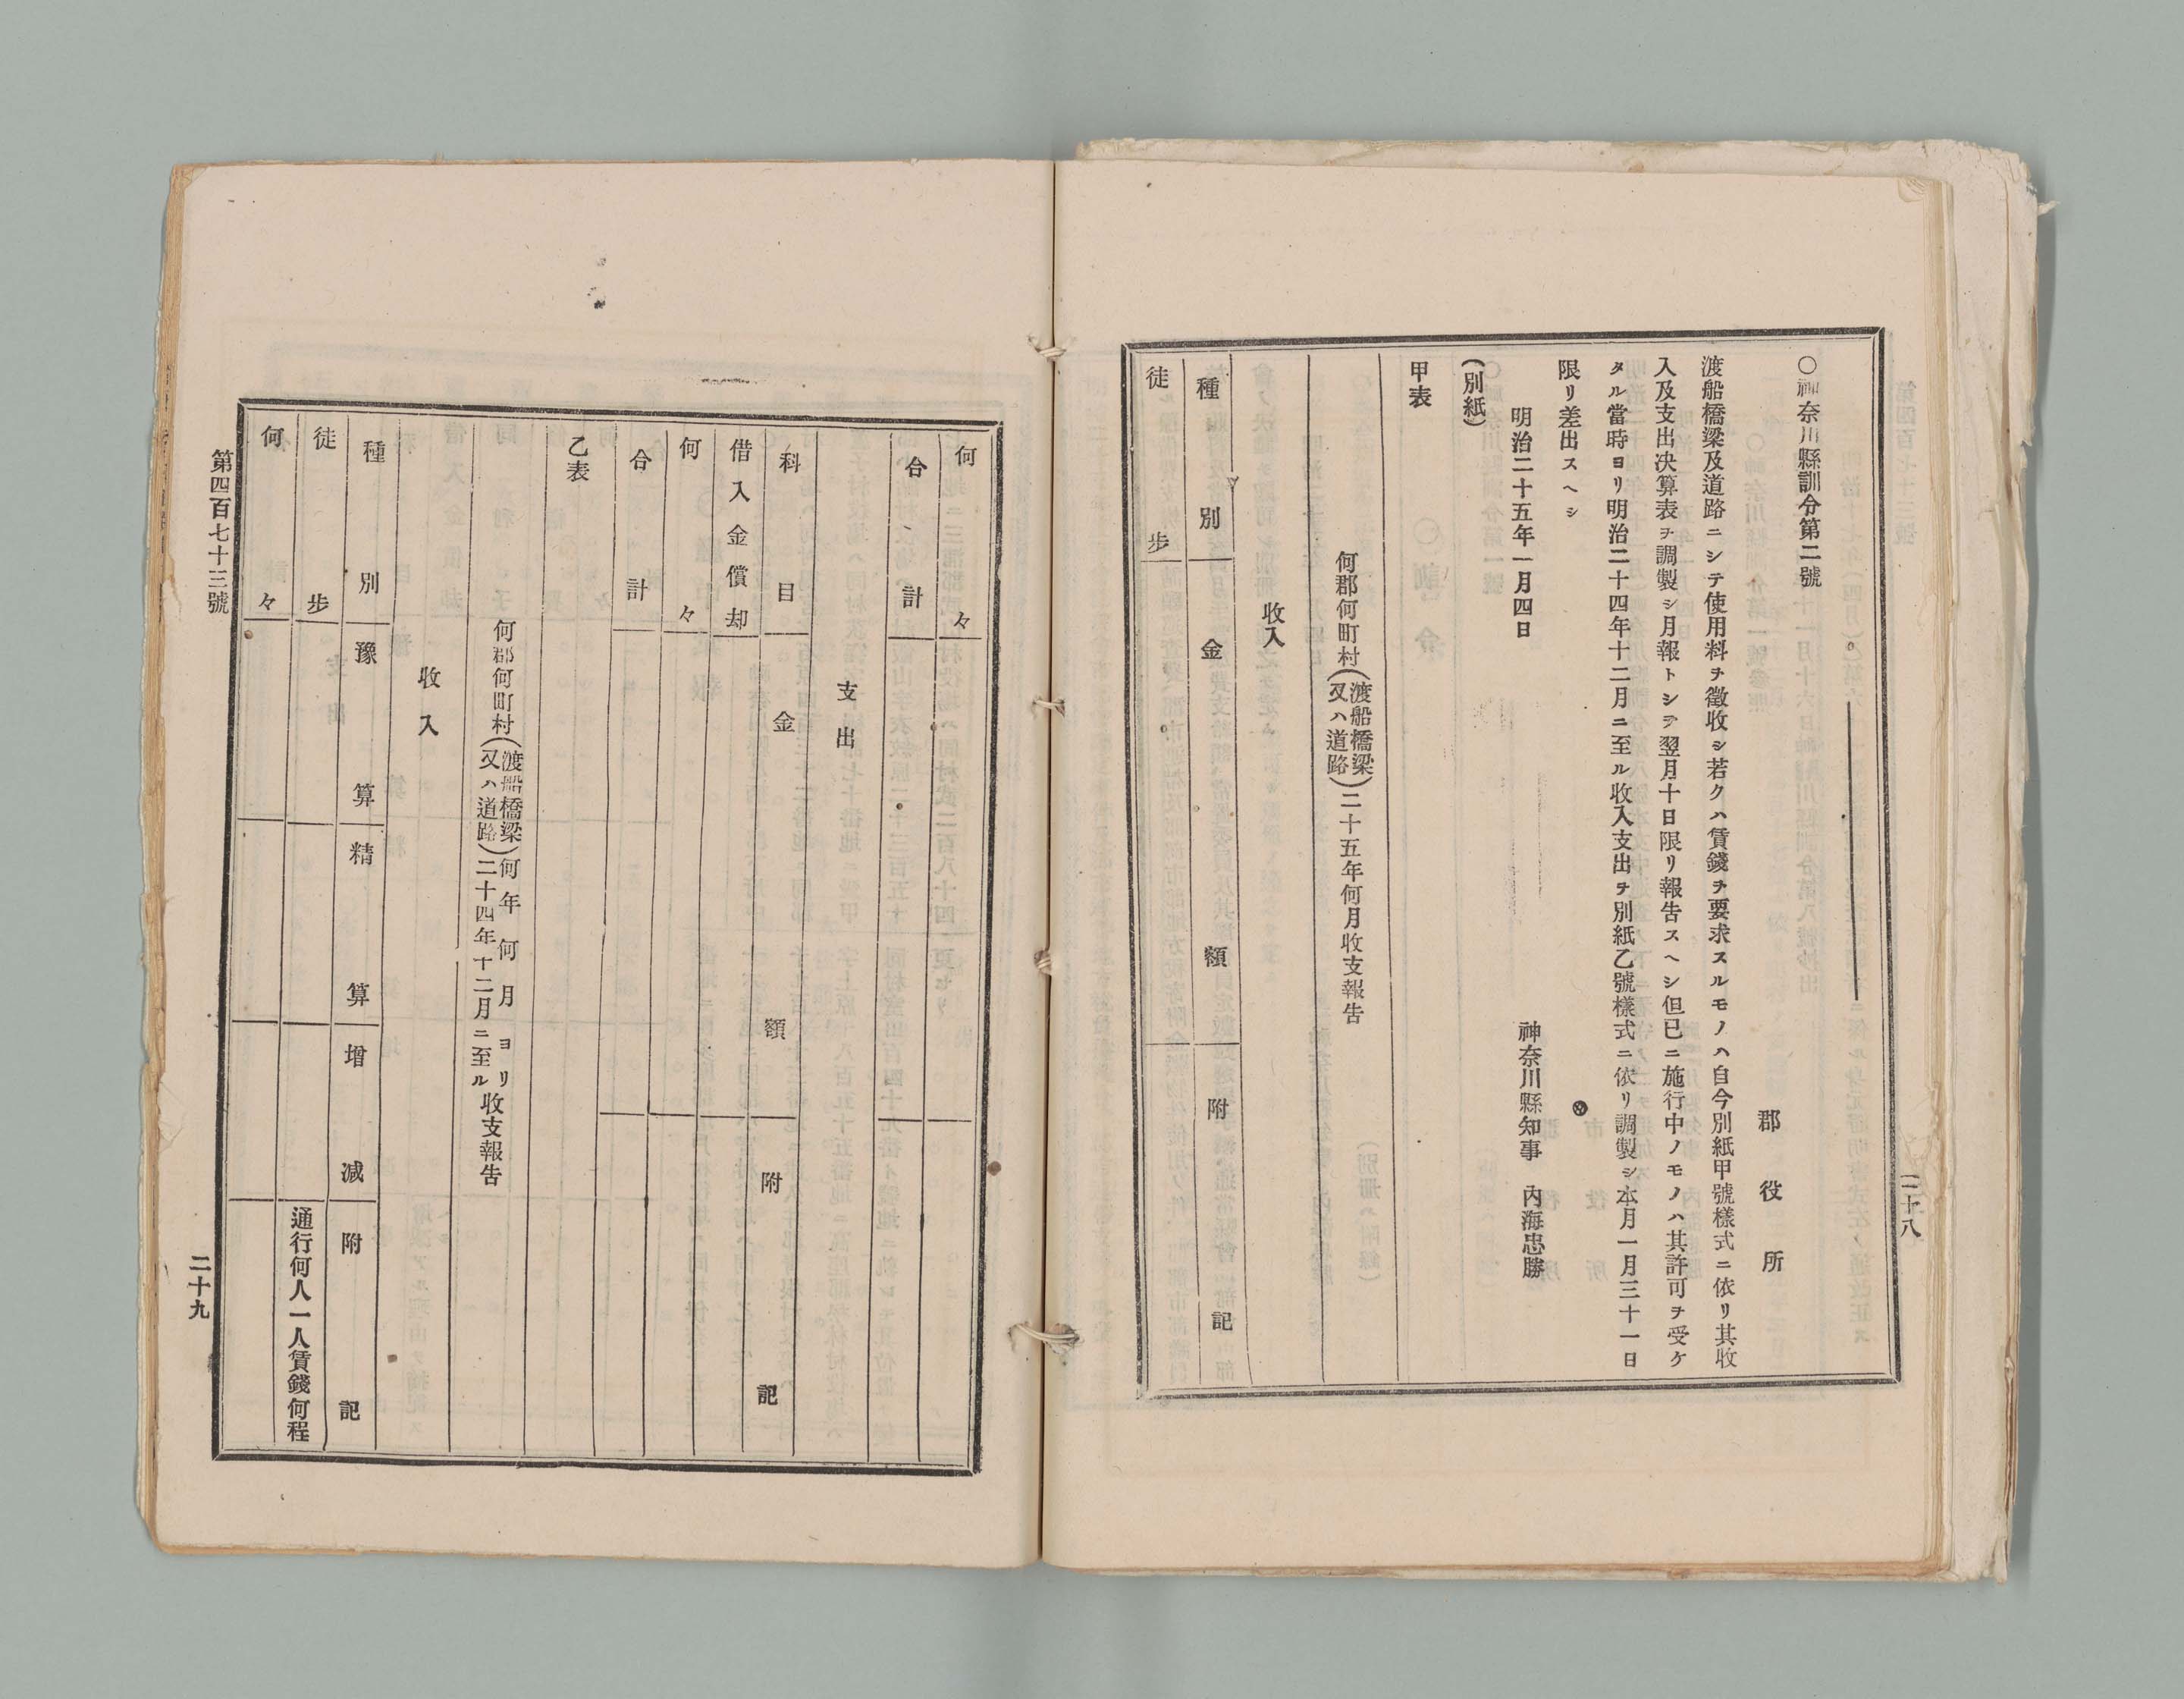 二十八
○神奈川縣訓令第二號
郡役所
渡船橋梁及道路ニシテ使用料ヲ徵收シ若クハ賃錢ヲ要求スルモノハ自今別紙甲號樣式ニ依リ其收
入及支出決算表ヲ調製シ月報トシテ翌月十日限リ報告スヘシ但已ニ施行中ノモノハ其許可ヲ受ケ
タル當時ヨリ明治二十四年十二月ニ至ル收入支出ヲ別紙乙號樣式ニ依リ調製シ本月一月三十一日
限リ差出スヘシ
明治二十五年一月四日 神奈川縣知事 內海忠勝
(別紙)
甲表
何郡何町村(渡船橋梁又ハ道路)二十五年何月收支報告
收入
種別 金額 附記
徒步
何々
合計
支出
科目 金額 附記
借入金償却
何々
合計
乙表
何郡何町村(渡船橋梁又ハ道路)何年何月ヨリ二十四年十二月ニ至ル收支報告
收入
種別 豫算 精算 增減 附記
徒步 通行何人一人賃錢何程
何々
第四百七十三號
二十九